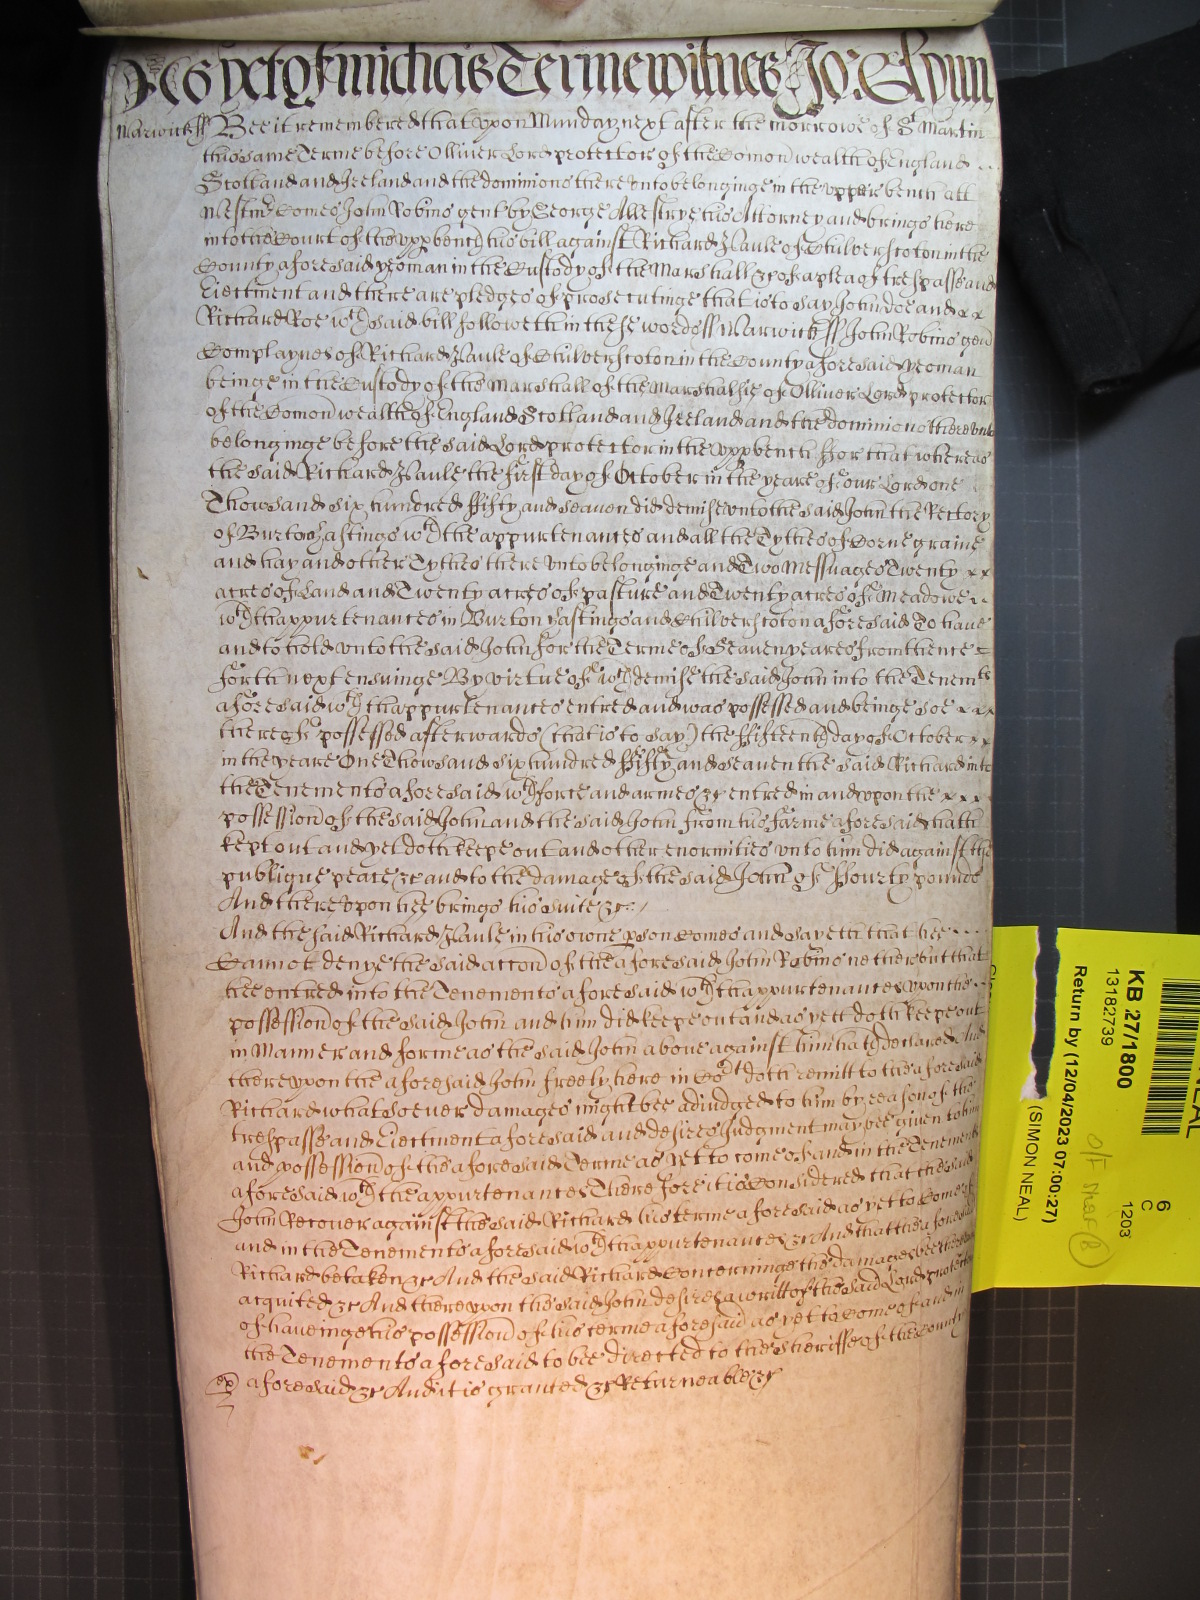 As yet of Michās Terme witnes Jo: Glynn
Warwick ss Bee it remembered that vpon Munday next after the morrowe of St Martin
this same Terme before Olliver Lord protector of the Comon wealth of England
Scotland and Ireland and the dominions there vnto belonginge in the vpper bench att
Westmr Comes John Robins gent by George his Attorney and brings here
into the Court of the vpp bench his bill against Richard Naule of Stulverscoton in the
County aforesaid yeoman in the Custody of the Marshall &c of a plea of trespasse and
Eiectment and there are pledges of prosecutinge that is to say John doe and
Richard Roe wch said bill followeth in these words ss Warwick ss John Robins gen
Complaynes of Richard Naule of Stulverscoton in the County aforesaid yeoman
beinge in the Custody of the Marshall of the Marshalsie of Olliver Lord protector
of the Comon wealth of England Scotland and Ireland and the dominions there vnto
belonginge before the said Lord protector in the vpp bench ffor that whereas
the said Richard Naule the first day of October in the yeare of our Lord one
Thowsand six hundred ffifty and seaven did demise vnto the said John the Rectory
of Burton hastings wth the appurtenances and all the Tythes of Corne graine
and hay and other Tythes there vnto belonginge and Two Messuages Twenty
acres of Land and Twenty acres of pasture and Twenty acres of Meadowe
wth thappurtenances in Burton hastings and Stulverscoton aforesaid To have
and to hold vnto the said John for the Terme of Seaven yeares from thence
forth next ensuinge By virtue of wch demise the said John into the Tenemts
aforesaid wth thappurtenances entred and was possessed and beinge soe
thereof possessed afterwards (that is to say) the ffifteenth day of October
in the yeare One Thowsand six hundred ffifty and seaven the said Richard into
the Tenements aforesaid wth force and armes &c entred in and vpon the
possession of the said John and the said John from his farme aforesaid hath
kept out and yet doth keepe out and other enormities vnto him did against the
publique peace &c and to the damage of the said John of ffourty pounds
And there vpon hee brings his suite &c
And the said Richard Naule in his owne pson Comes and sayeth that hee
Cannot denye the said accon of the aforesaid John Robins ne ther but that
hee entred into the Tenements aforesaid wth thappurtenances vpon the
possession of the said John and him did keepe out and as yett doth keepe out
in Manner and forme as the said John above against him hath declared And
therevpon the aforesaid John freely here in Cort doth remitt to the aforesaid
Richard whatsoever damages might bee adiudged to him by reason of the
trespasse and Eiectment aforesaid and desires Judgment may bee given to him
and possession of the aforesaid Terme as yet to come of and in the Tenements
aforesaid wth the appurtenances Therefore it is Considered that the said
John Recover against the said Richard his terme aforesaid as yet to Come of
and in the Tenements aforesaid wth thappurtenances &c And that the aforesaid
Richard be taken &c And the said Richard Concerninge the damages bee
acquited &c And there vpon the said John desires a writt of the said Lord protector
of haveinge his possession of his terme aforesaid as yet to Come of and in
the Tenements aforesaid to bee directed to the Sheriffe of the County
ex aforesaid &c And it is granted &c Returneable &c
KB 27/1800
13182739
Return by (12/04/2023 07:00:27)
(SIMON NEAL)
6
C
1203